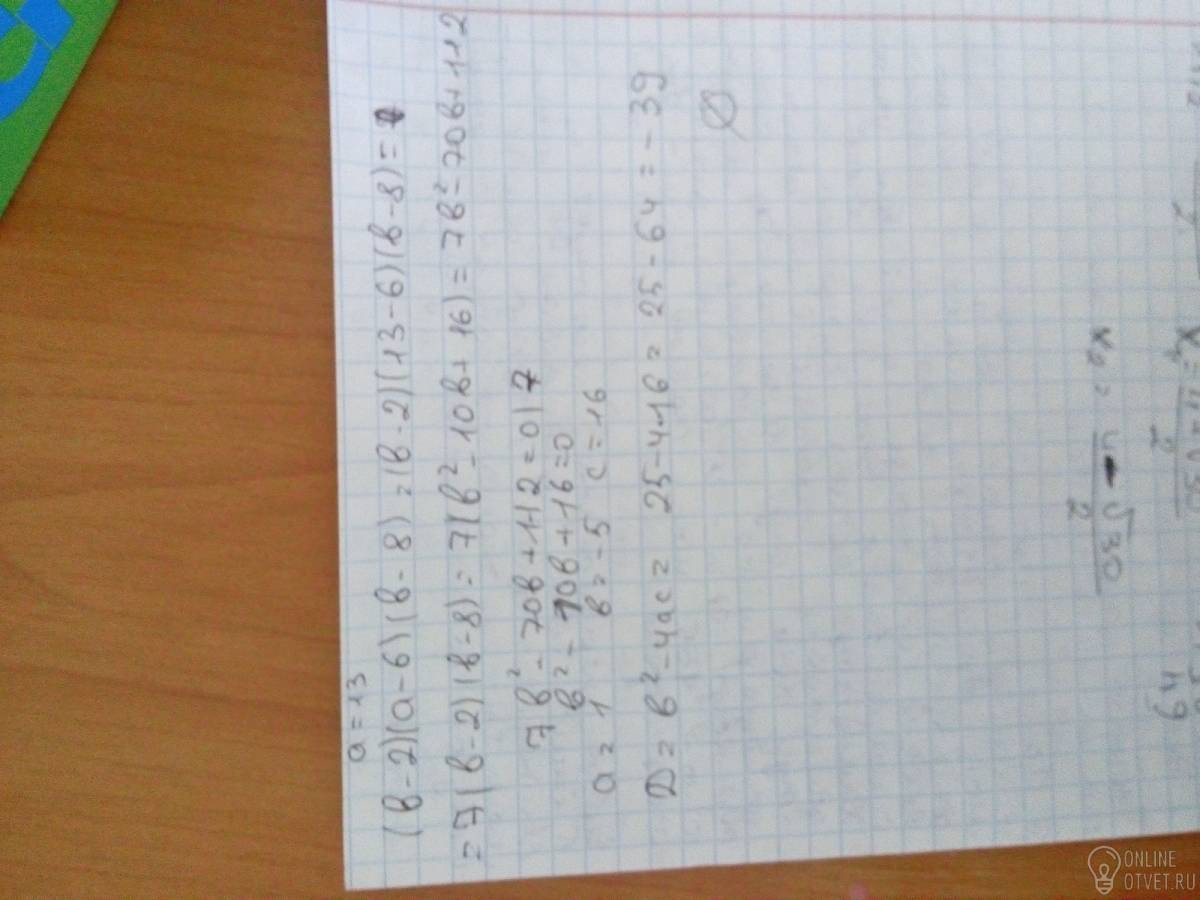 a = 13
(в-2)(a-6)(в-8) = (в-2)(13-6)(в-8) =
= 7(в-2)(в-8) = 7(в²-10в+16) = 7в²-70в+112
7в²-70в+112=0|7
в²-10в+16=0
a = 1 в = -5 с = 16
D = в²-4ac = 25-4·16 = 25-64 = -39
∅
x₂ = 4-√30
2
49
ONLINE
OTVET.RU